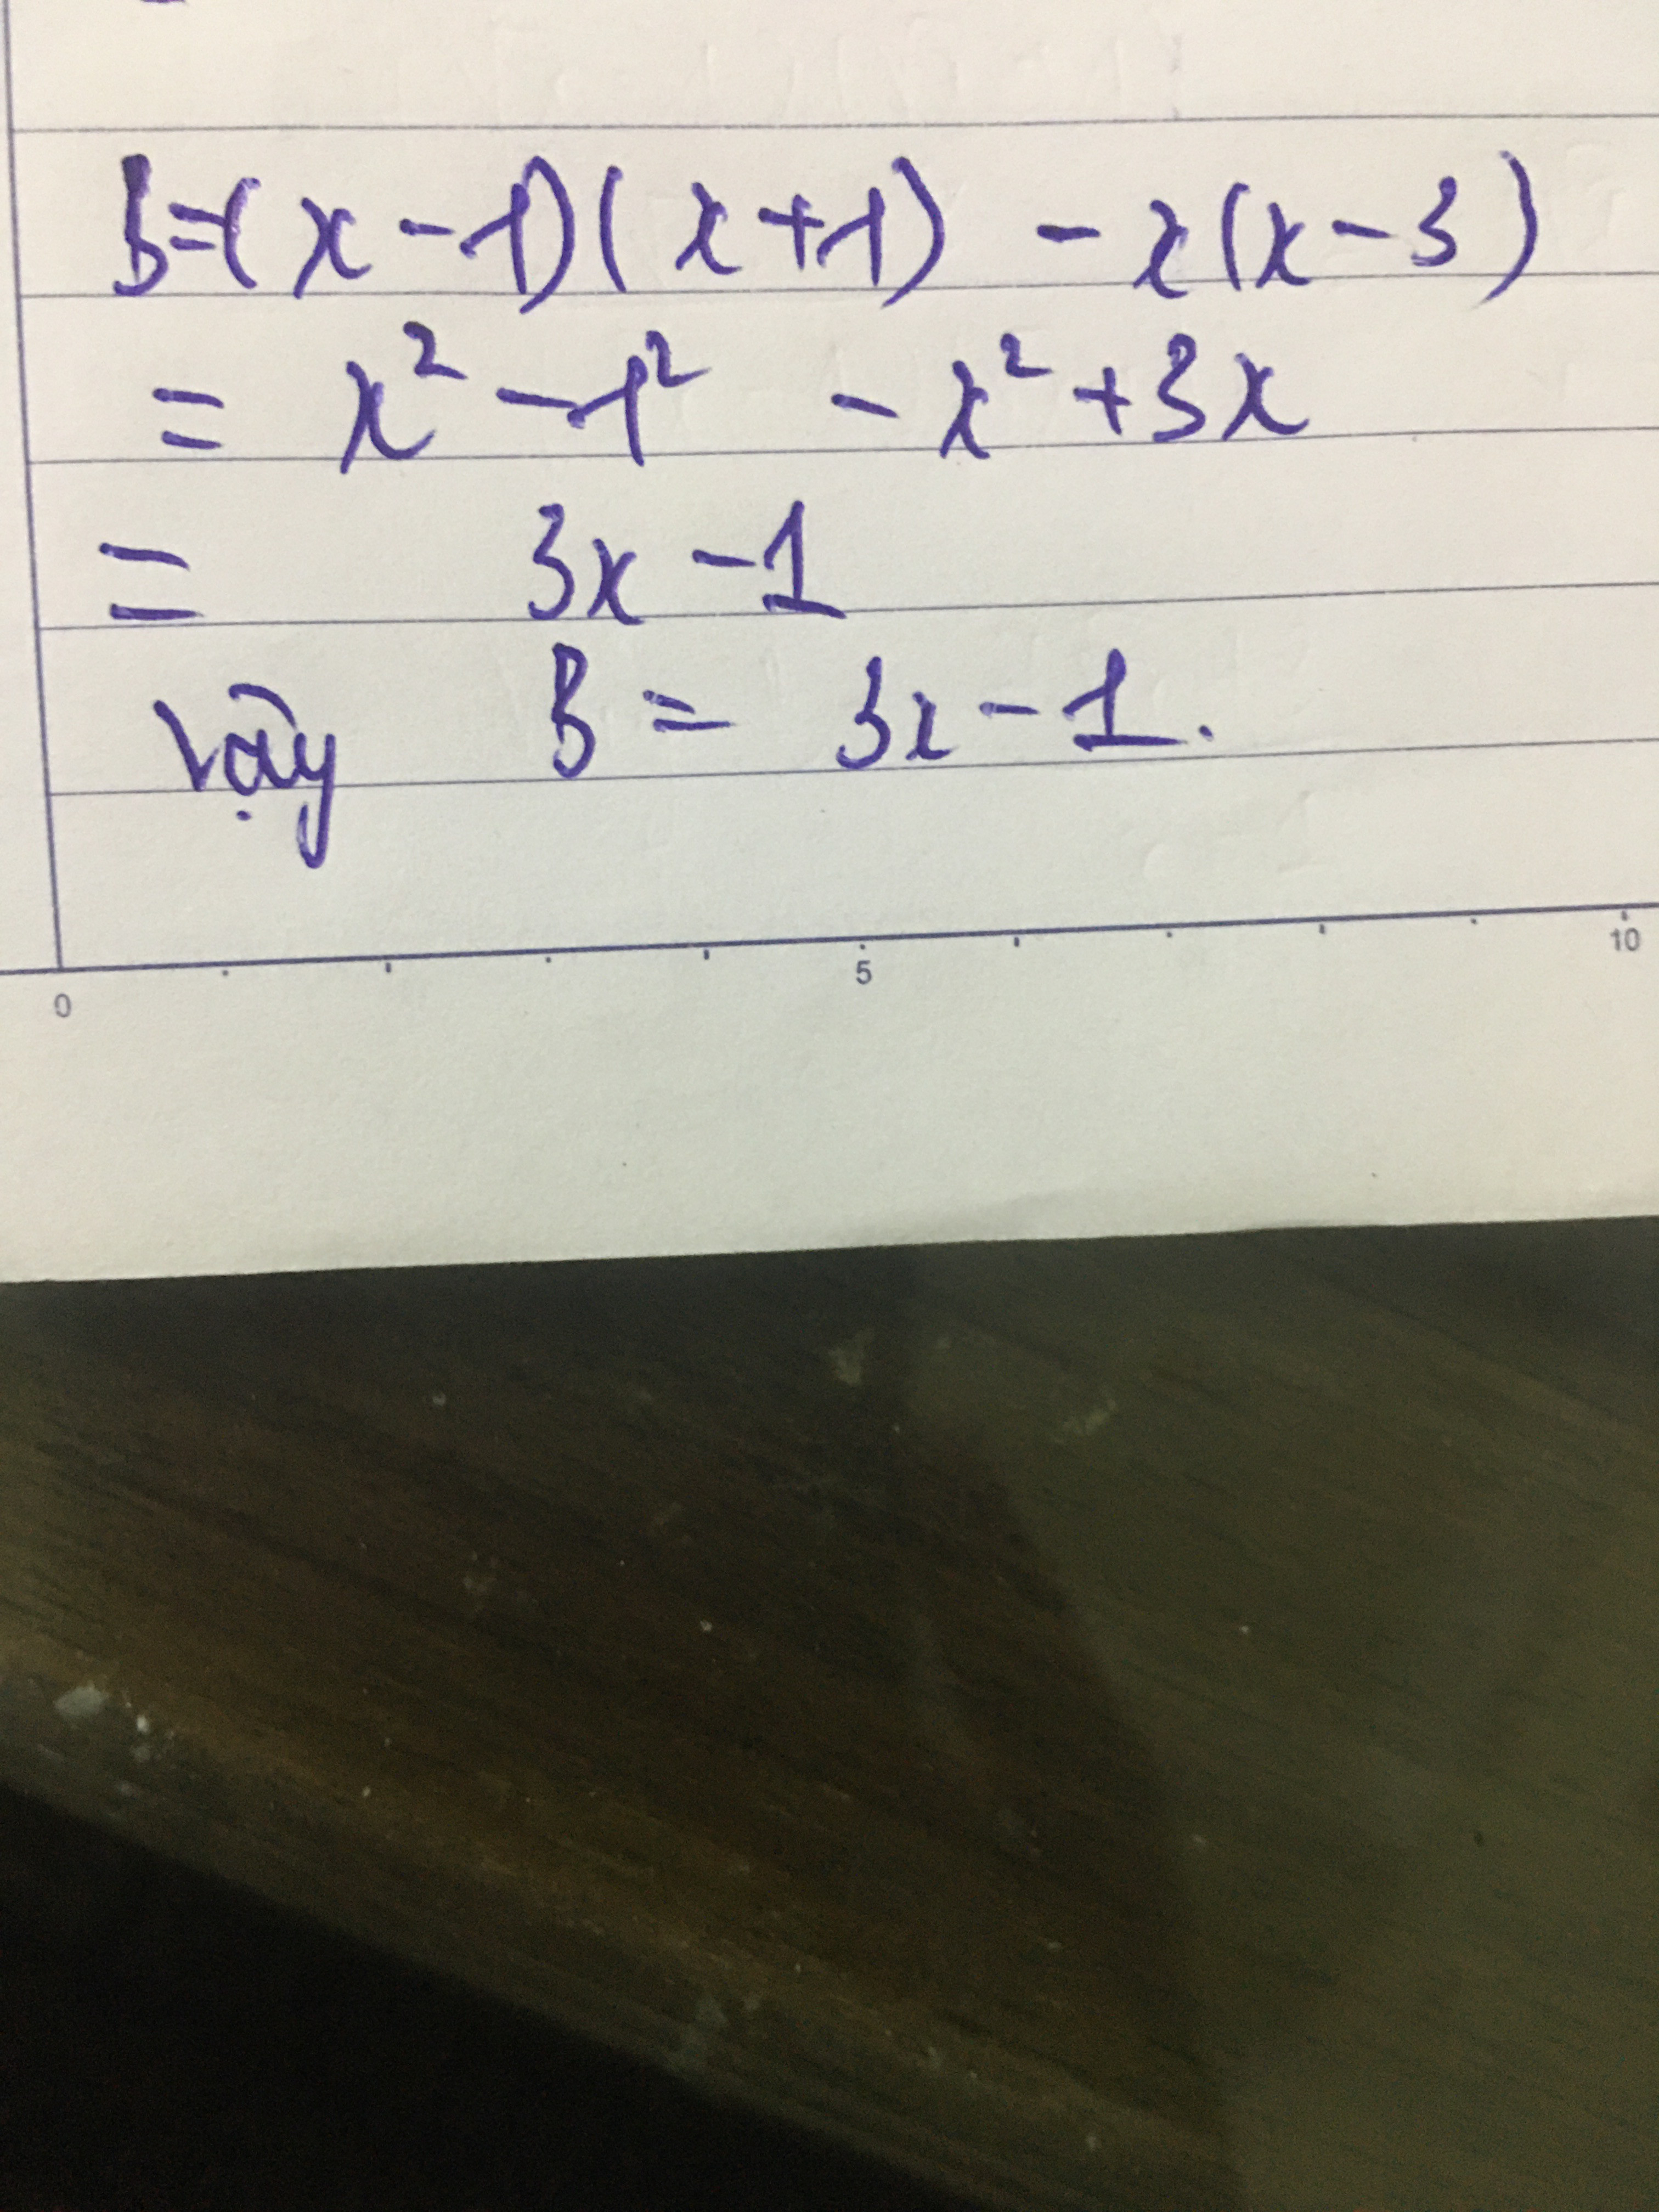 B=(x-1)(x+1) - x(x-3)
= x² -1² - x² +3x
= 3x -1
Vậy B = 3x-1.
0 5 10